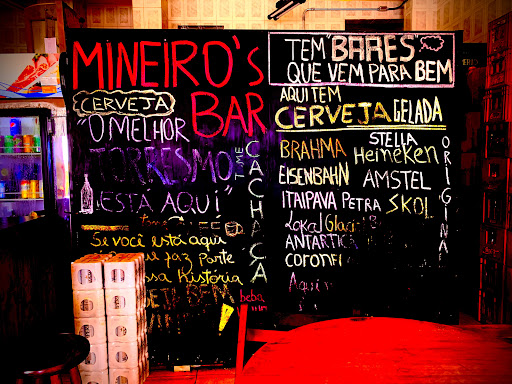 MINEIRO'S
BAR
CERVEJA
"O MELHOR
TORRESMO
ESTÁ AQUÍ"
CACHAÇA
Se você está aqui
faz parte
História
TEM "BARES"
QUE VEM PARA BEM
AQUI TEM
CERVEJA GELADA
BRAHMA STELLA
Heineken
EISENBAHN AMSTEL
ITAIPAVA PETRA SKOL
Lokal
ANTARTIC
ORIGINAL
Aqui
beba